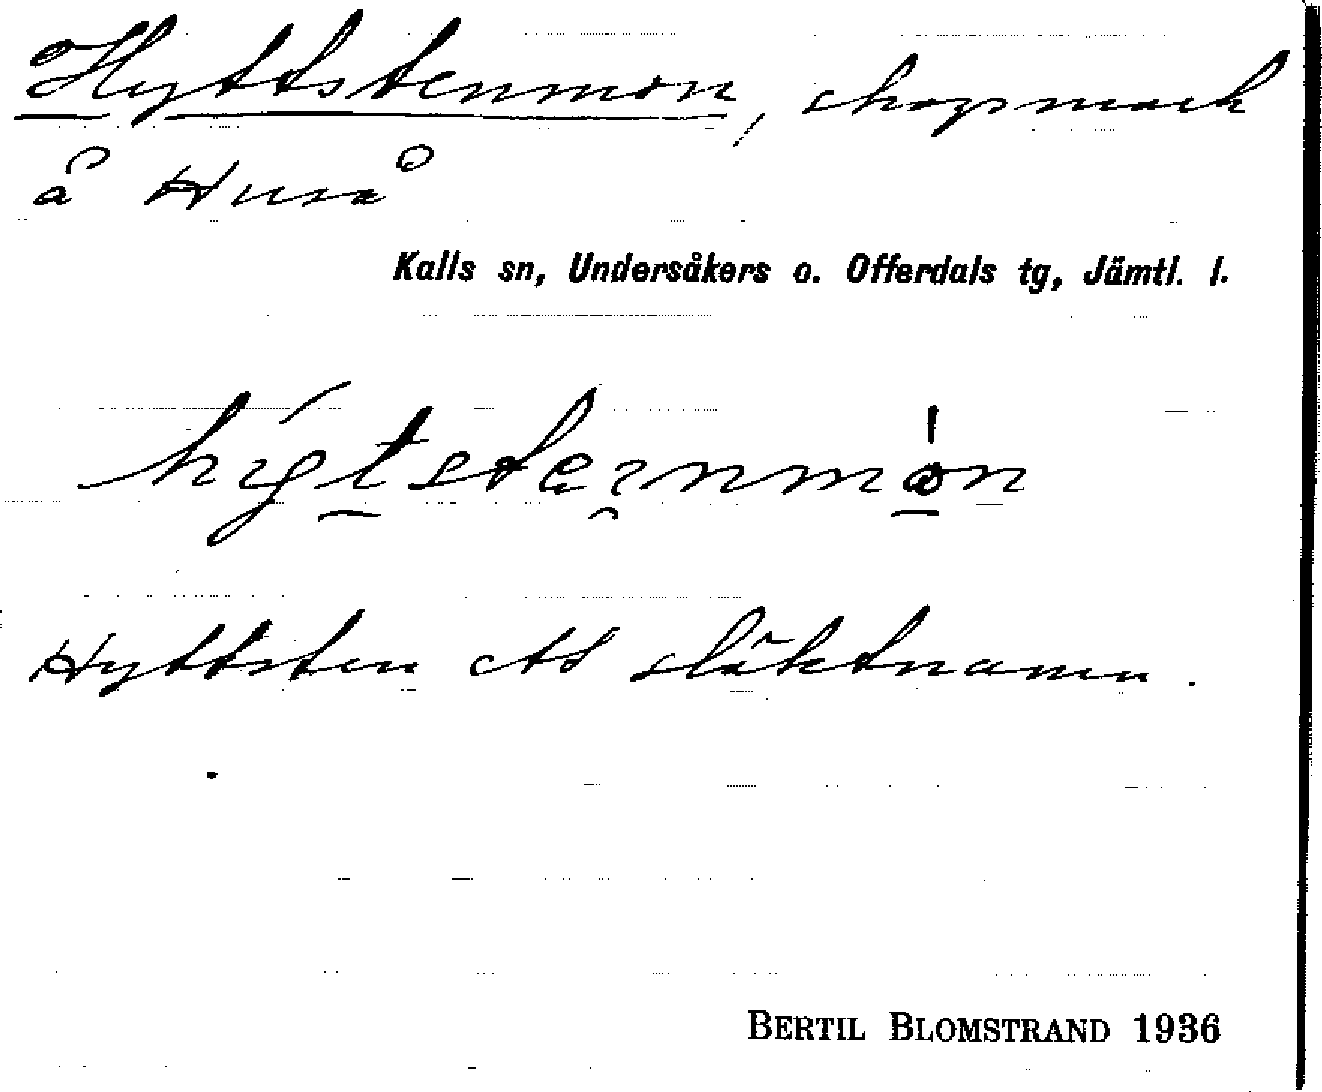 Hyttstenmon, skogsmark
å Huså
Kalls sn, Undersåkers o. Offerdals tg, Jämtl. l.
Hyttsten ett släktnamn.
BERTIL BLOMSTRAND 1936